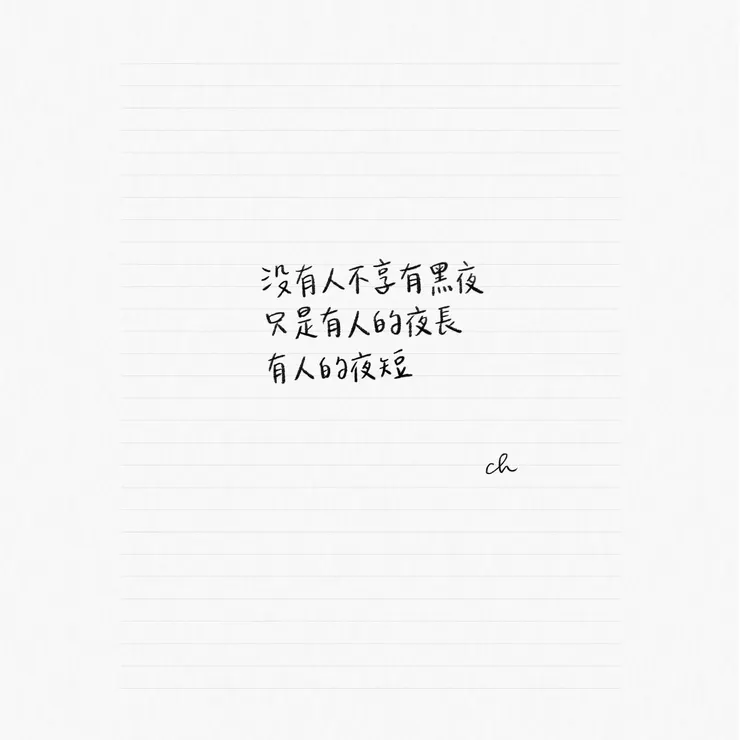 沒有人不享有黑夜
只是有人的夜長
有人的夜短
ch